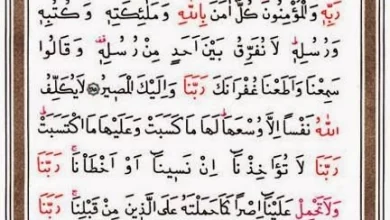 رَبِّهٖ وَالْمُؤْمِنُونَ كُلٌّ اٰمَنَ بِاللّٰهِ وَمَلٰٓئِكَتِهٖ وَكُتُبِهٖ
وَرُسُلِهٖ لَا نُفَرِّقُ بَيْنَ اَحَدٍ مِنْ رُسُلِهٖ وَقَالُوا
سَمِعْنَا وَاَطَعْنَا غُفْرَانَكَ رَبَّنَا وَاِلَيْكَ الْمَصٖيرُ ﴿٢٨٥﴾ لَا يُكَلِّفُ
اللّٰهُ نَفْسًا اِلَّا وُسْعَهَا لَهَا مَا كَسَبَتْ وَعَلَيْهَا مَا اكْتَسَبَتْ
رَبَّنَا لَا تُؤَاخِذْنَٓا اِنْ نَسٖينَٓا اَوْ اَخْطَأْنَا رَبَّنَا
وَلَا تَحْمِلْ عَلَيْنَٓا اِصْرًا كَمَا حَمَلْتَهُ عَلَى الَّذٖينَ مِنْ قَبْلِنَا رَبَّنَا